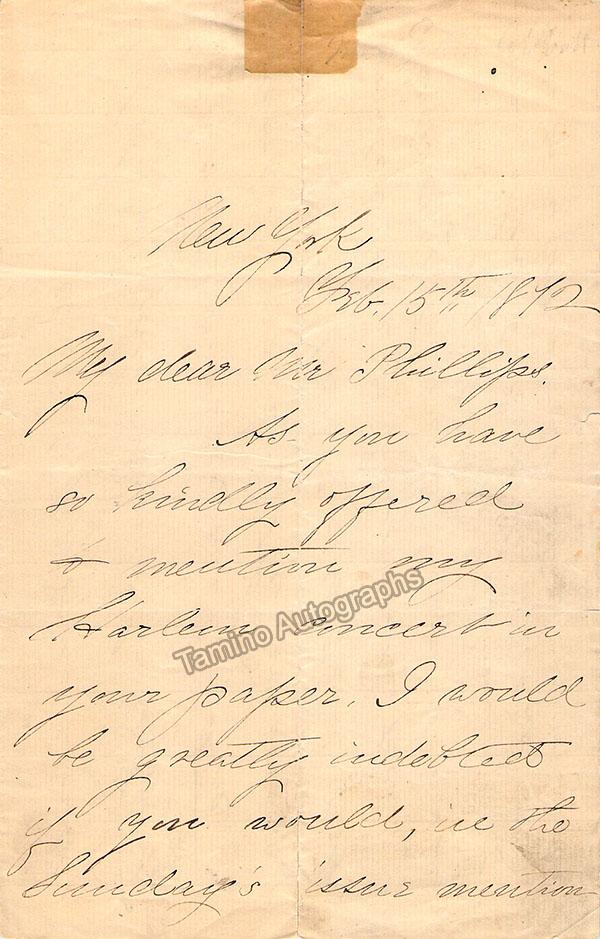 New York
Feb. 15th, 1872
My dear Mr Phillips.
As you have
so kindly offered
to mention my
Harlem concert in
your paper, I would
be greatly indebted
if you would, in the
Sunday's issue mention
Tamino Autographs